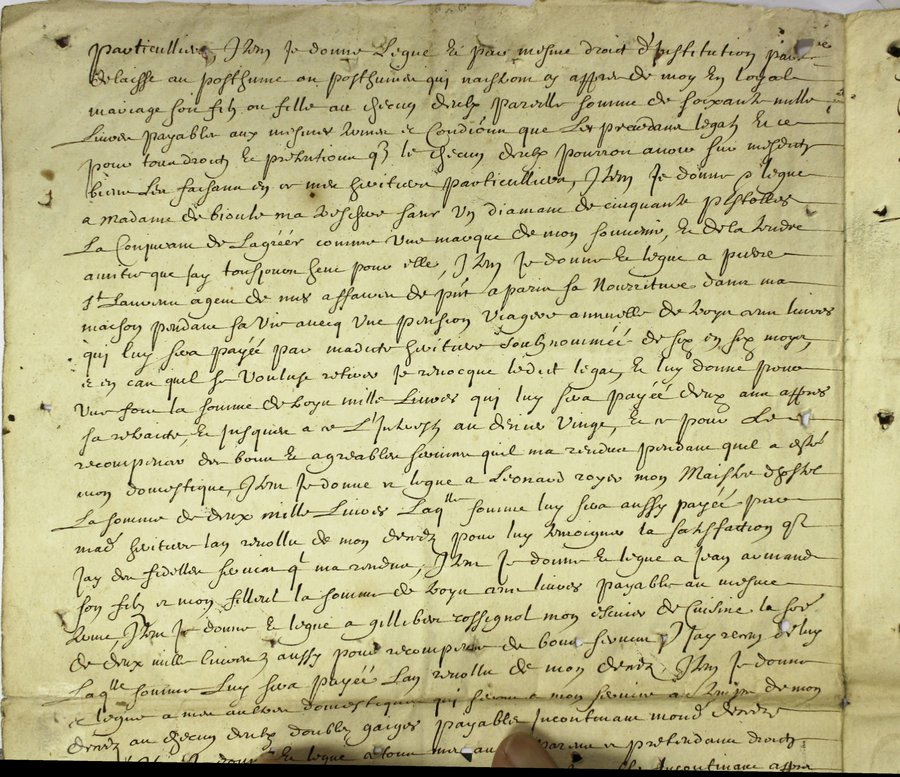 particulliers, Item je donne Legue et par mesme droit d'Institution par
delaisse au posthume ou posthumes qui naistront cy appres de moy En loyal
mariage soit fils ou fille au chacun d'eulx pareille somme de soixante mille
Livres payables aux mesmes termes et Condiõns que Les precedans legatz Et ce
pour tous droitz Et pretentions qz le chacun d'eulx pourront avoir sur mesdictz
biens Les faisant en ce mes heritiers particulliers, Item Je donne legue
a Madame de bioule ma tres chere sœur Un diamant de cinquante pistolles
La Conjurant de Lagréér comme Une marque de mon souvenir, Et de la tendre
amitie que jay tousjours heue pour elle, Item je donne Et legue a pierre
St Laurens agent de mes affaires de pnt a paris sa Nourriture dans ma
maison pendant sa Vie avecq Une pension Viagere annuelle de trois cens livres
qui luy sera payéé par madicte heritiere soubznommée de six en six moys,
et en cas quil se Voulust retirer je revocque ledict legat, Et luy donne pour
Une fois la somme de trois mille Livres qui luy sera payéé deux ans appres
sa retraite, Et jusques a ce L'Interest au denier Vingt, Et ce pour Le
recompenser des bons Et agreables services quil ma rendus pendant quil a esté
mon domestique, Item Je donne et legue a Leonard royer mon Maistre d'hostel
La somme de deux mille Livres Laqlle somme luy sera aussy payéé par
mad heritiere lan revollu de mon decedz pour luy temoigner la satisfaction qz
Jay des fidelles services ql ma rendus, Item Je donne Et legue a Jean armand
son filz et mon filleul la somme de trois cens livres payable au mesme
terme, Item Je donne Et legue a gillibert rossignol mon escuier de cuisine la soe
de deux mille livres aussy pour recompense de bons services Jay receu de luy
Laqlle somme Luy sera payéé Lan revollu de mon decedz, Item Je donne
et legue a mes aultres domestiques qui seront a mon service a de mon
decedz au chacun d'eulx doubles gaiges payables Incontinant mond decedz
donne Et legue a tous mes au parens et pretendans droitz
Incontinant appres